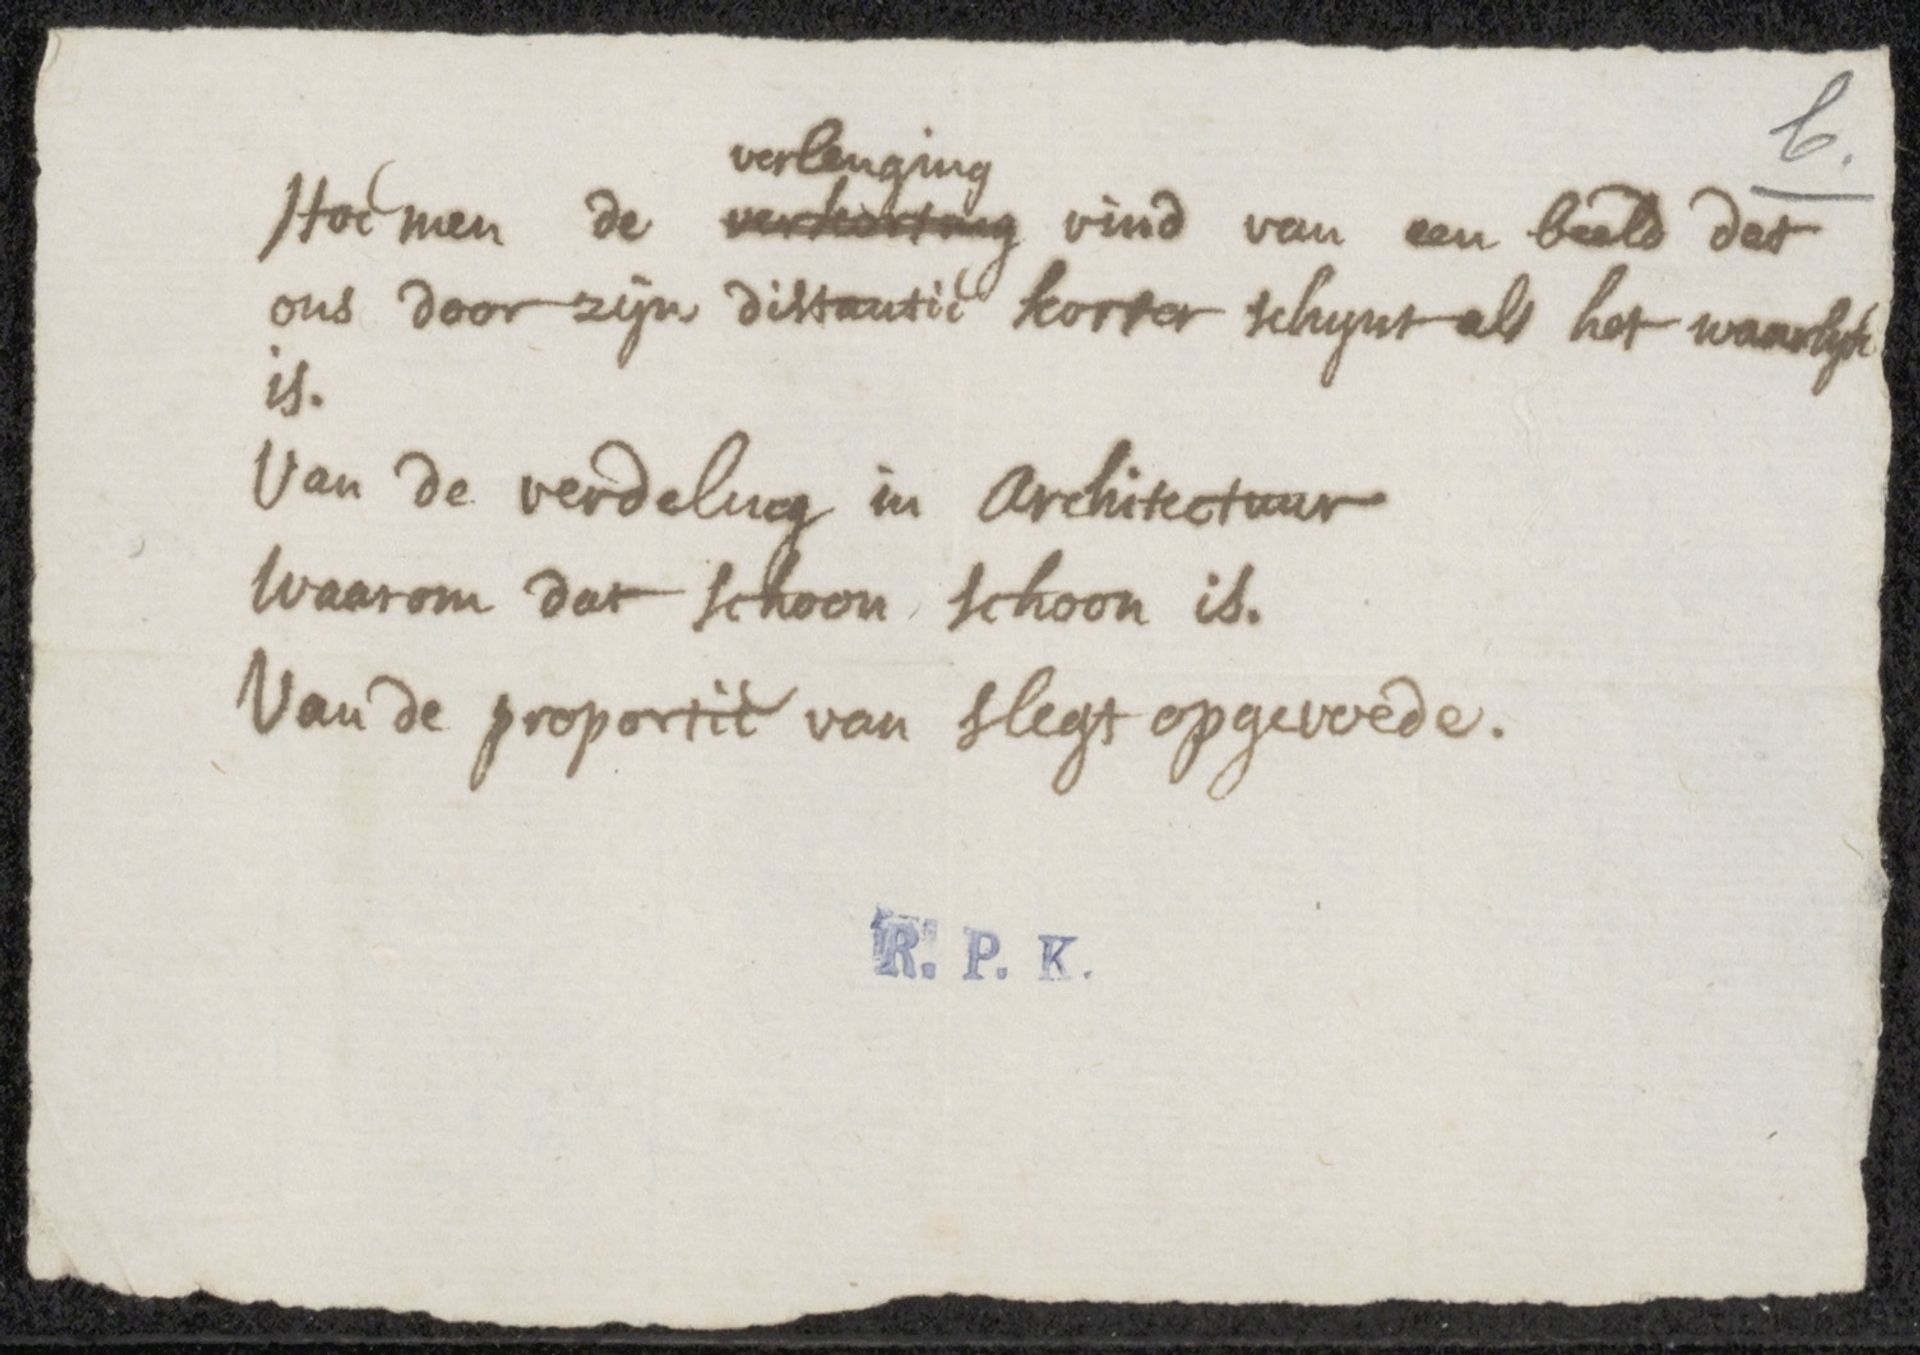 6.
verlenging
Hoe men de verkorting vind van een beeld dat
ons door zijn distantie korter schynt als het waarlyk
is.
Van de verdeling in Architectuur
Waarom dat schoon schoon is.
Van de proportie van slegt opgevoede.
R. P. K.